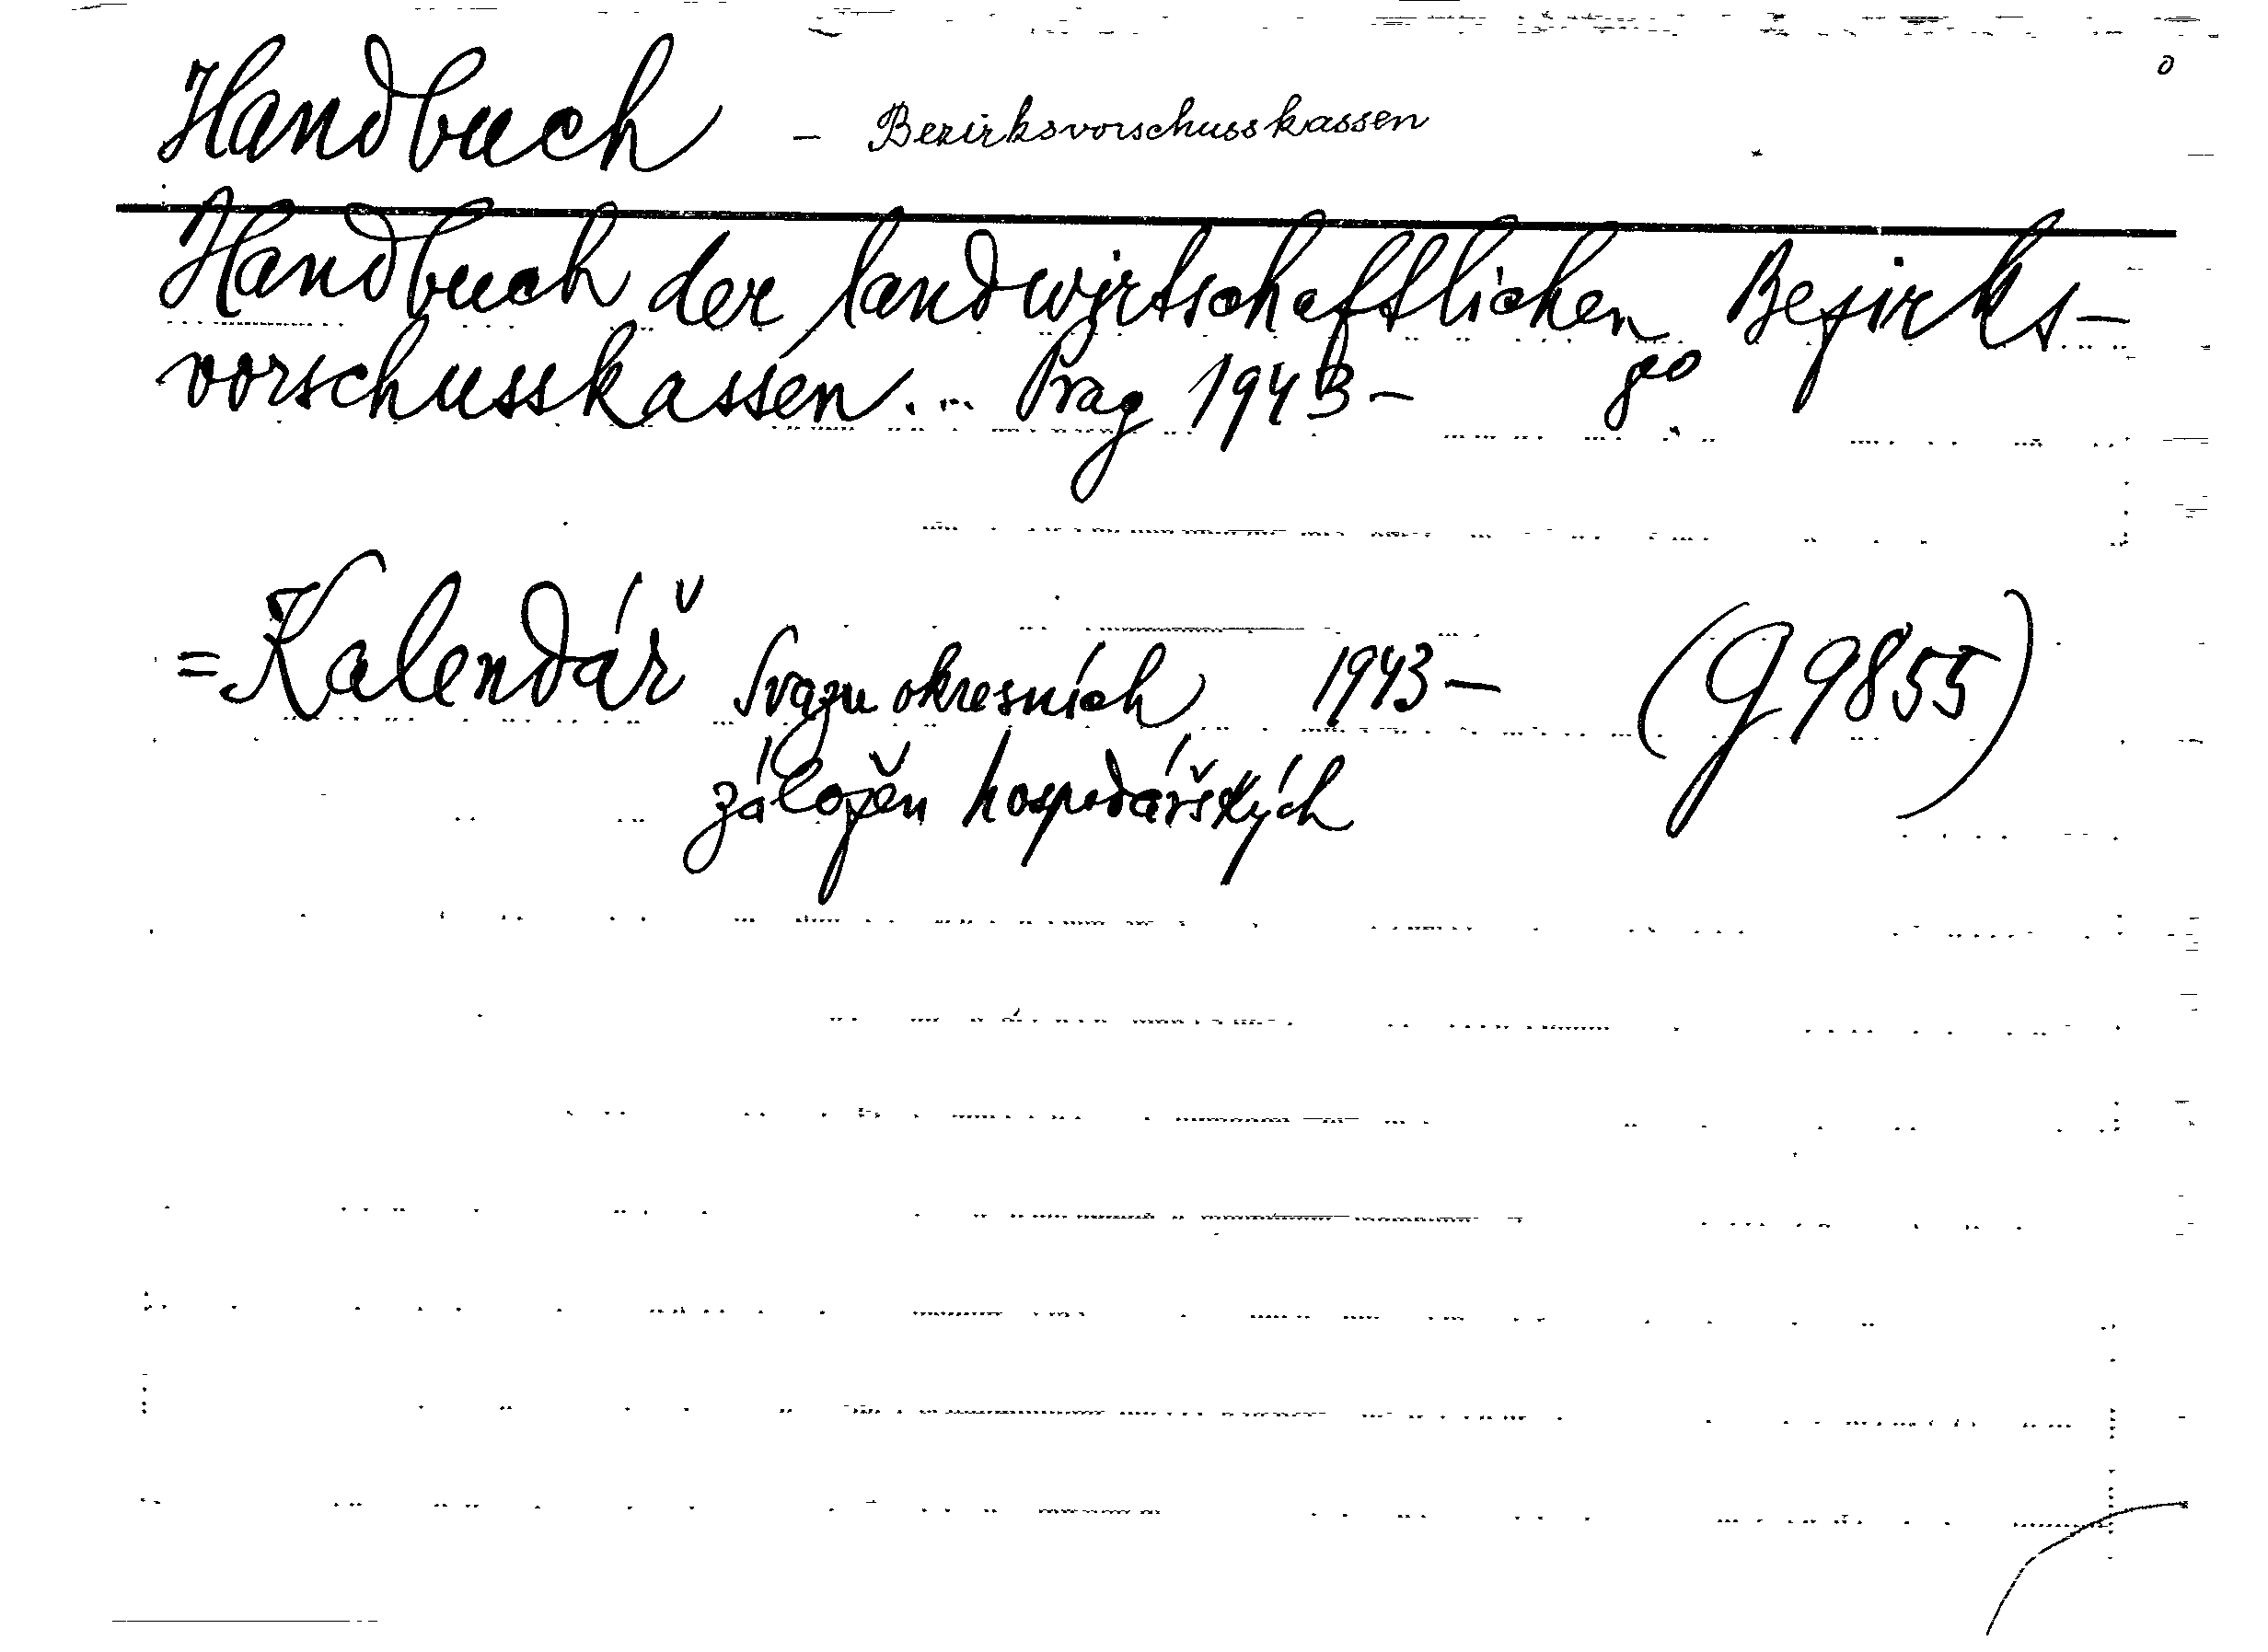 Handbuch - Bezirksvorschusskassen
Handbuch der landwirtschaftlichen Bezirks-
vorschusskassen... Prag 1943-
= Kalendář Svazu okresních 1943- (G 9855)
záložen hospodářských